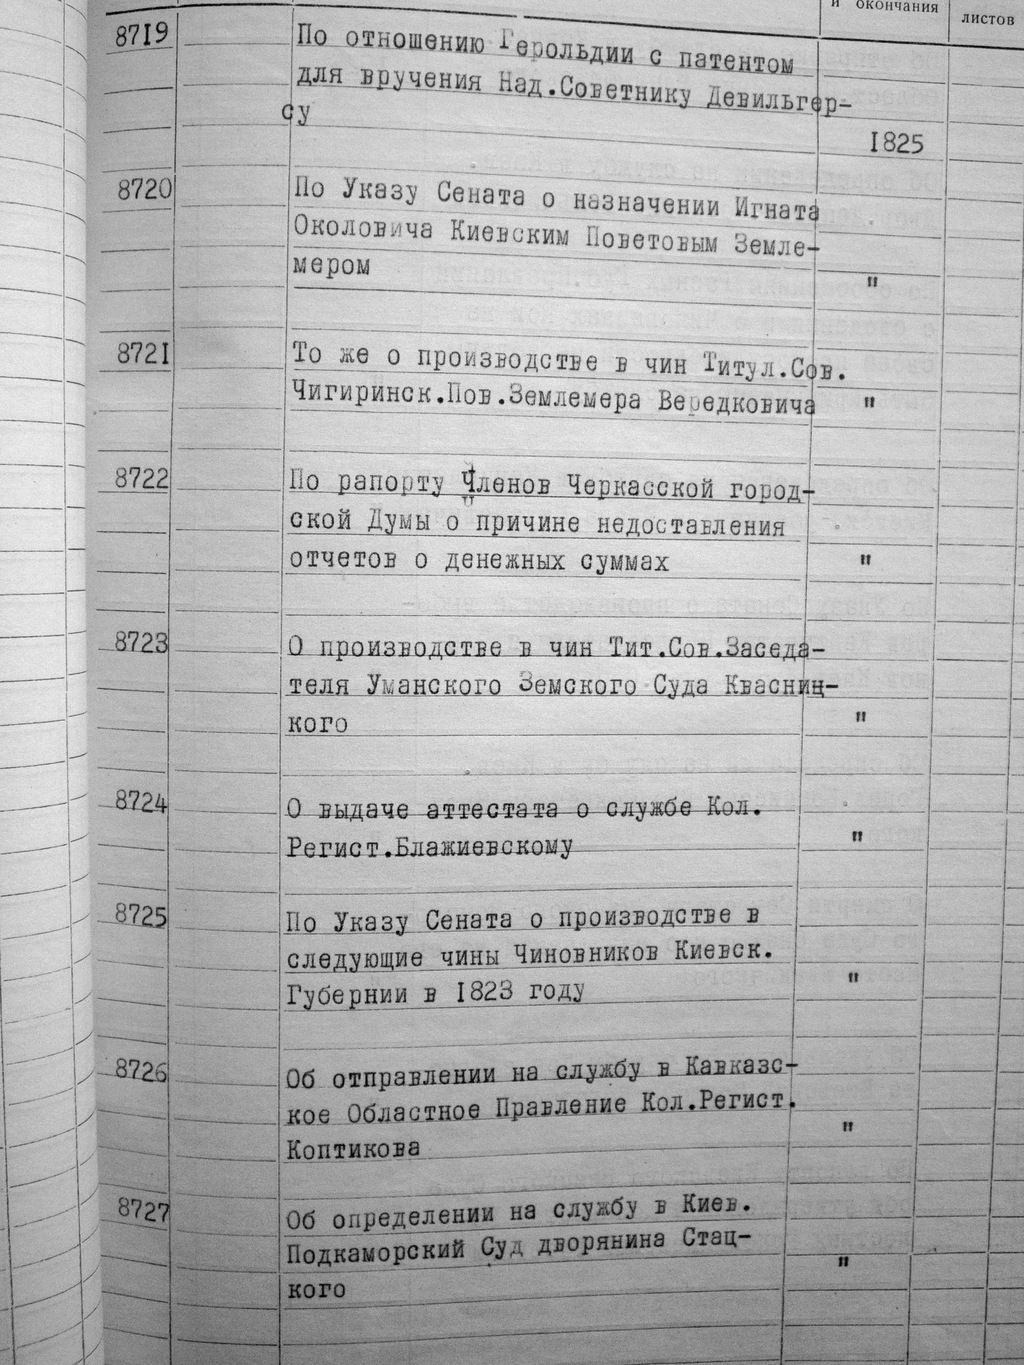 и окончания
листов
8719 По отношению Герольдии с патентом
для вручения Над.Советнику Девильгер-
су
1825
8720 По Указу Сената о назначении Игната
Околовича Киевским Поветовым Земле-
мером "
8721 То же о производстве в чин Титул.Сов.
Чигиринск.Пов.Землемера Вередковича "
8722 По рапорту Членов Черкасской город-
ской Думы о причине недоставления
отчетов о денежных суммах "
8723 О производстве в чин Тит.Сов.Заседа-
теля Уманского Земского Суда Квасниц-
кого "
8724 О выдаче аттестата о службе Кол.
Регист.Блажиевскому "
8725 По Указу Сената о производстве в
следующие чины Чиновников Киевск.
Губернии в 1823 году "
8726 Об отправлении на службу в Кавказс-
кое Областное Правление Кол.Регист.
Коптикова "
8727 Об определении на службу в Киев.
Подкаморский Суд дворянина Стац-
кого "